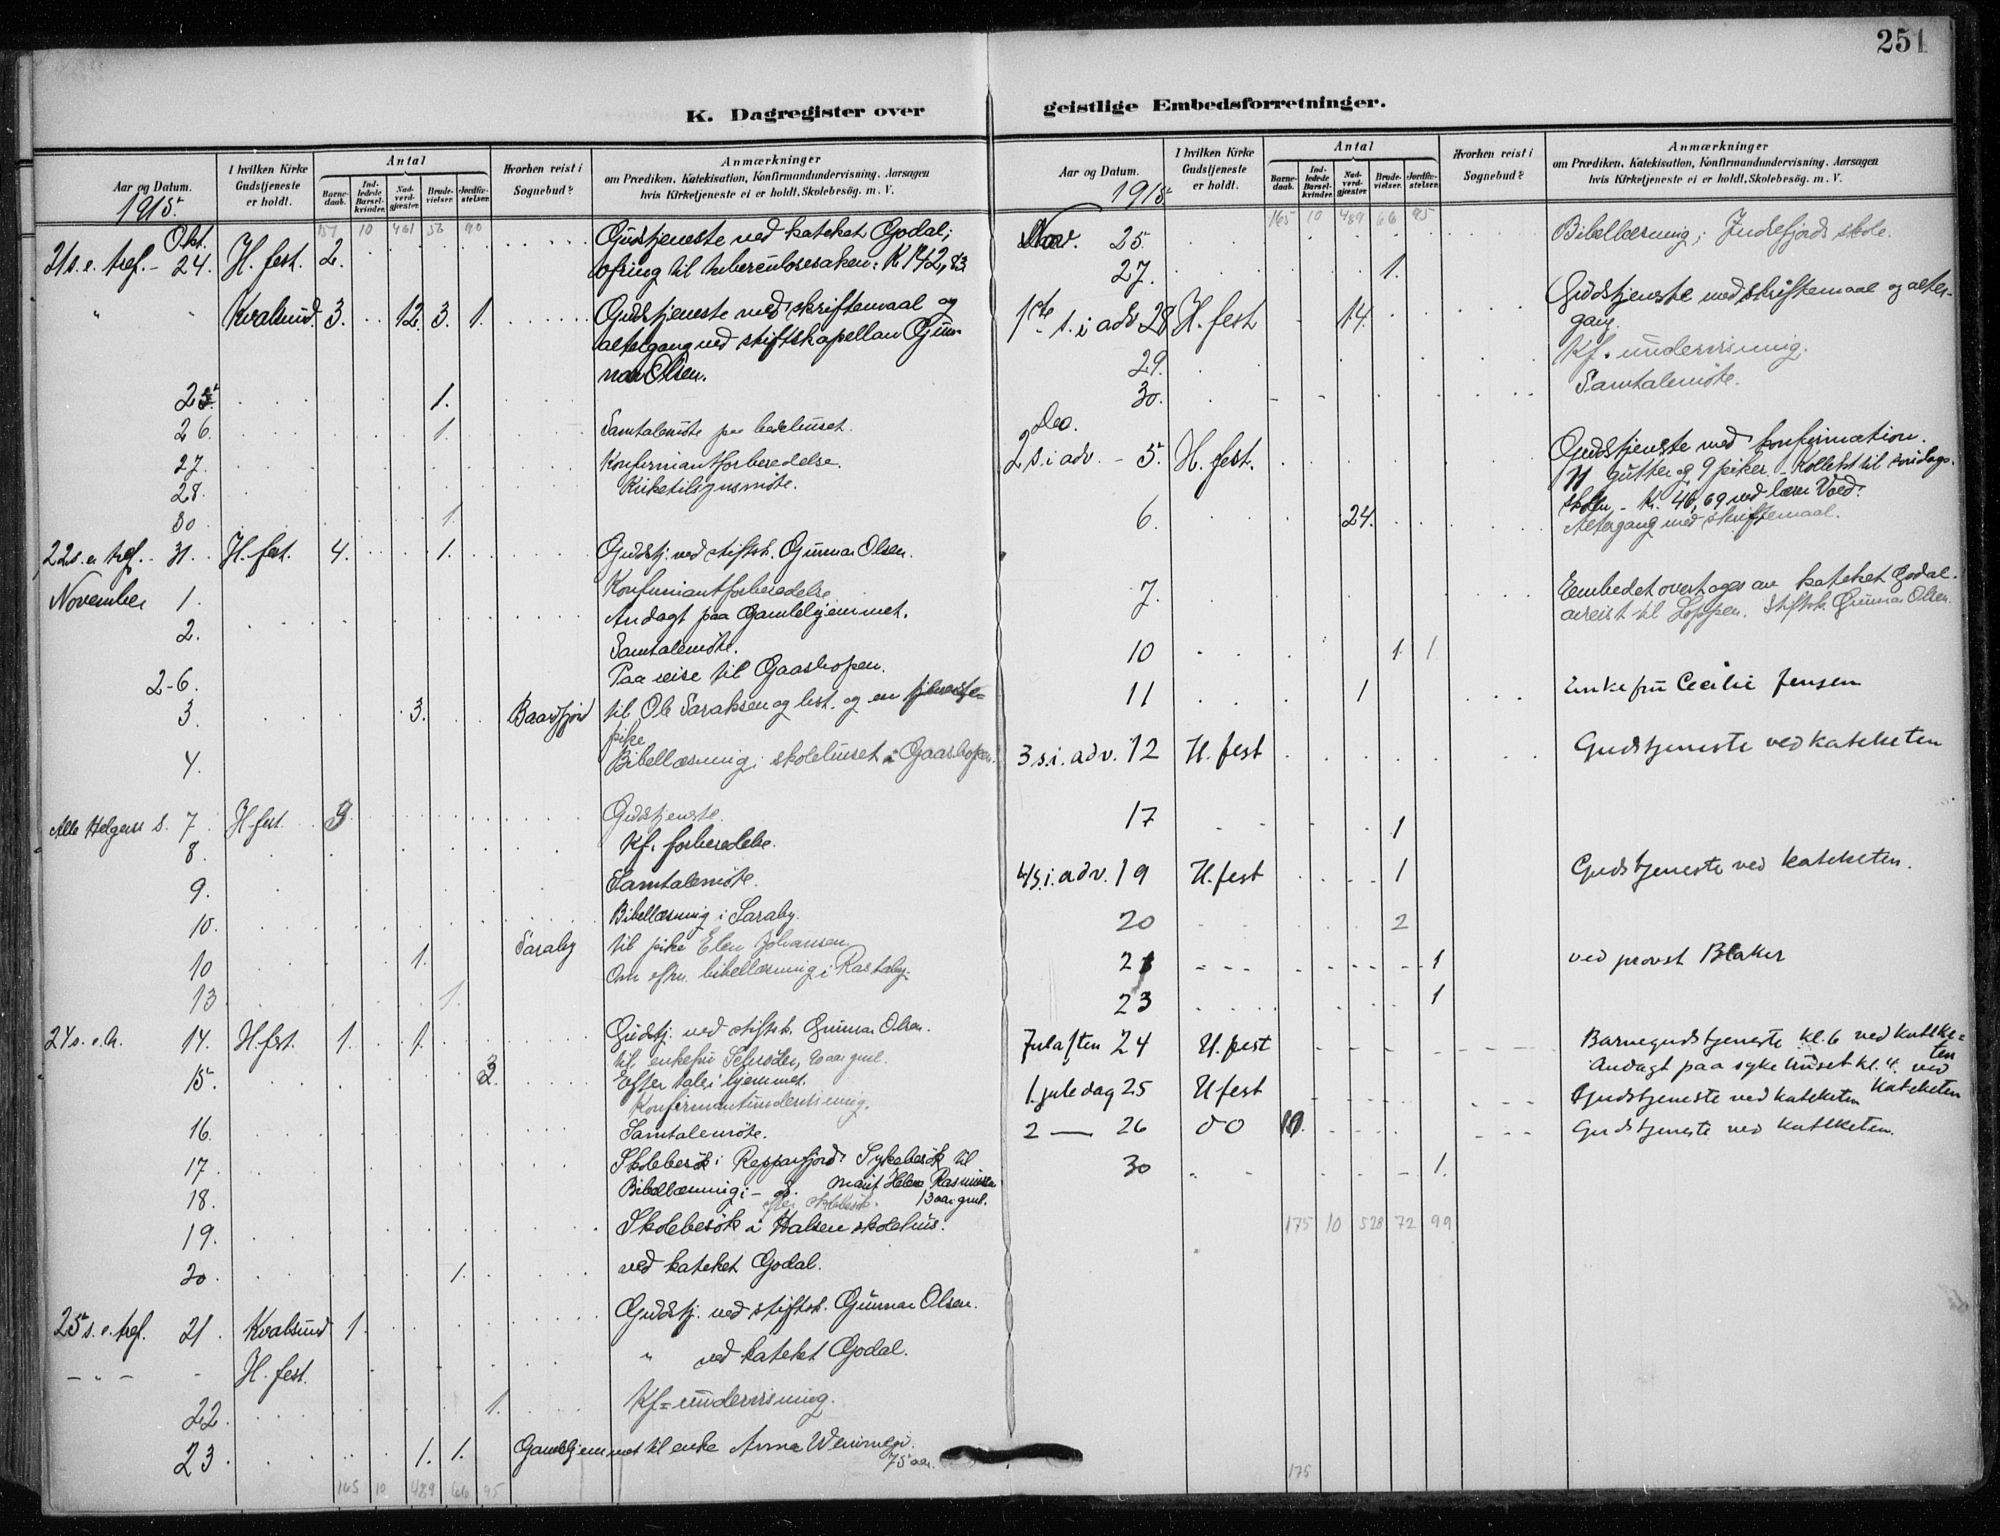 251
K. Dagregister over geistlige Embedsforretninger.
Aar og Datum.
1915.
I hvilken Kirke Gudstjeneste er holdt.
Antal
Barne-daab.
Ind-ledede Barsel-kvinder.
Nad-verd-gjæster.
Brude-vielser.
Jordfæ-stelser.
Hvorhen reist i Sognebud?
Anmærkninger
om Prædiken. Katekisation, Konfirmandundervisning. Aarsagen
hvis Kirketjeneste ei er holdt. Skolebesøg. m. V.
157 10 461 56 90
Okt.
21 s. e. tref. - 24. H. fest. 2. Gudstjeneste ved kateket Godal;
ofring til tuberculosesaken: K 142,83.
" Kvalsund. 3. 12. 3. 1. Gudstjeneste med skriftemaal og
altergang ved stiftskapellan Gun-
nar Olsen.
25. 1.
26. 1. Samtalemöte paa bedehuset.
27. Konfirmantforberedelse.
28. Kirketilsynsmöte.
30 1.
22 s. e. tref. - 31. H. fest. 4. 1. Gudstj. ved stiftsk. Gunnar Olsen.
November 1. Konfirmantforberedelse
Andagt paa Gamlehjemmet.
2. Samtalemöte.
2-6. Paa reise til Gaashopen.
3. 3. Baarfjord til Ole Saraksen og hst. og en tjeneste=
pike
4. Bibellæsning i skolehuset i Gaashopen.
Alle Helgens s. 7. H. fest. 3 Gudstjeneste.
8. Kf. forberedelse.
9. Samtalemöte.
10. Bibellæsning i Saraby.
10 1. Saraby til pike Elen Johansen.
Om efm. bibellæsning i Rastaby.
13 1.
24 s. e. tr. 14. H. fest. 1. 1. Gudstj. ved stiftsk. Gunnar Olsen.
til enkefru Schröder, 80 aar gml.
15. 2. Efter tale i hjemmet.
Konfirmantundervisning.
16. Samtalemöte.
17 Skolebesök i Repparfjord. Sykebesök til
18. Bibellæsning i - do. Marit Helene Rasmussen
efter skolebesök. 13 aar gml.
19. Skolebesök i Halsen skolehus.
20. 1. ved kateket Godal.
25 s. e. tref. 21. Kvalsund 1. Gudstj. ved stiftsk. Gunnar Olsen.
- " - - H. fest. " ved kateket Godal.
22. 1. Kf=undervisning.
23. 1. 1. Gamlehjemmet til enke Anna
75 aar.
165 10 489 66 95
Aar og Datum.
1915
I hvilken Kirke Gudstjeneste er holdt.
Antal
Barne-daab.
Ind-ledede Barsel-kvinder.
Nad-verd-gjæster.
Brude-vielser.
Jordfæ-stelser.
Hvorhen reist i Sognebud?
Anmærkninger
om Prædiken. Katekisation, Konfirmandundervisning. Aarsagen
hvis Kirketjeneste ei er holdt. Skolebesög. m. V.
165 10 489 66 95
Nov. 25. Bibellæsning i Indrefjords skole.
27. 1.
1ste s. i adv 28 H. fest 14. Gudstjeneste med skriftemaal og alter-
gang.
29. Kf. undervisning.
30. Samtalemöte.
Dec.
2 s. i adv. - 5. H. fest. Gudstjeneste med konfirmation.
11 gutter og 9 piker. Kollekt til söndags-
skolen - Kr. 46,69 ved lærer Vold.
6. 24. Altergang med skriftemaal.
7. Embedet overtages av kateket Godal.
avreist til Loppen. Stiftsk. Gunnar Olsen.
10 1 1
11 1 Enkefru Cecilie Jensen
3 s. i. adv. 12 H. fest Gudstjeneste ved kateketen
17 1
4 s. i. adv. 19 H. fest 1 Gudstjeneste ved kateketen.
20 2
21 1 ved provst Blaker
23 1
Juleaften 24 H. fest Barnegudstjeneste kl. 6 ved kateke=
ten
Andagt paa sykehuset kl. 4. ved
kateketen
1. juledag 25 H fest Gudstjeneste ved kateketen
2 — 26 do 10. Gudstjeneste ved kateketen.
30 " 1.
175 10 528 72 99
175